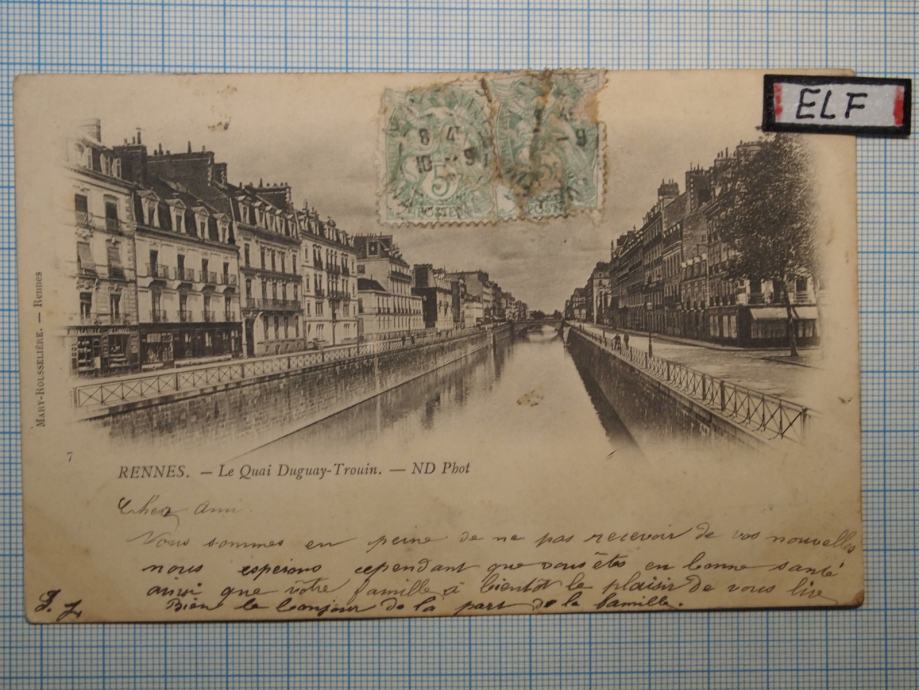 ELF
5
8 4
10
9
POSTES
MARY-ROUSSELIÈRE. — Rennes
7
RENNES. — Le Quai Duguay-Trouin. — ND Phot
Cher Ami
Nous sommes en peine de ne pas recevoir de vos nouvelles
nous esperons cependant que vous êtes en bonne santé
ainsi que vôtre famille à bientôt le plaisir de vous lire
Bien le bonjour de la part de la famille.